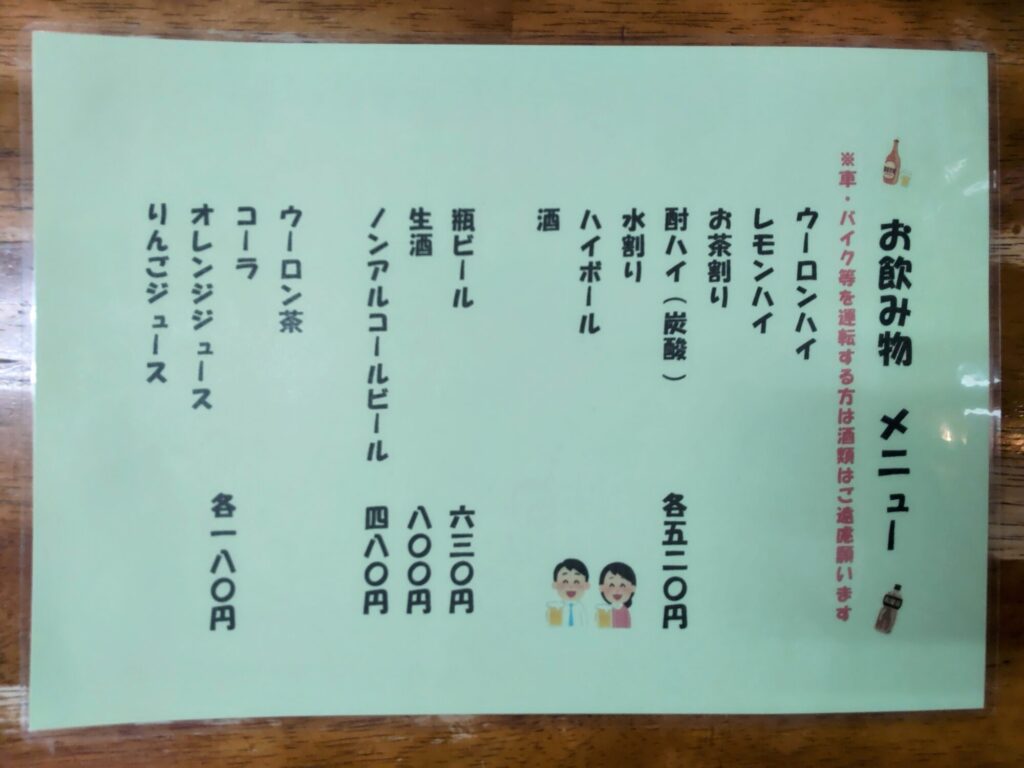 お飲み物　メニュー
※車・バイク等を運転する方は酒類はご遠慮願います
ウーロンハイ
レモンハイ
お茶割り
酎ハイ（炭酸）　各五二〇円
水割り
ハイボール
酒
瓶ビール　六三〇円
生酒　八〇〇円
ノンアルコールビール　四八〇円
ウーロン茶
コーラ
各一八〇円
オレンジジュース
りんごジュース